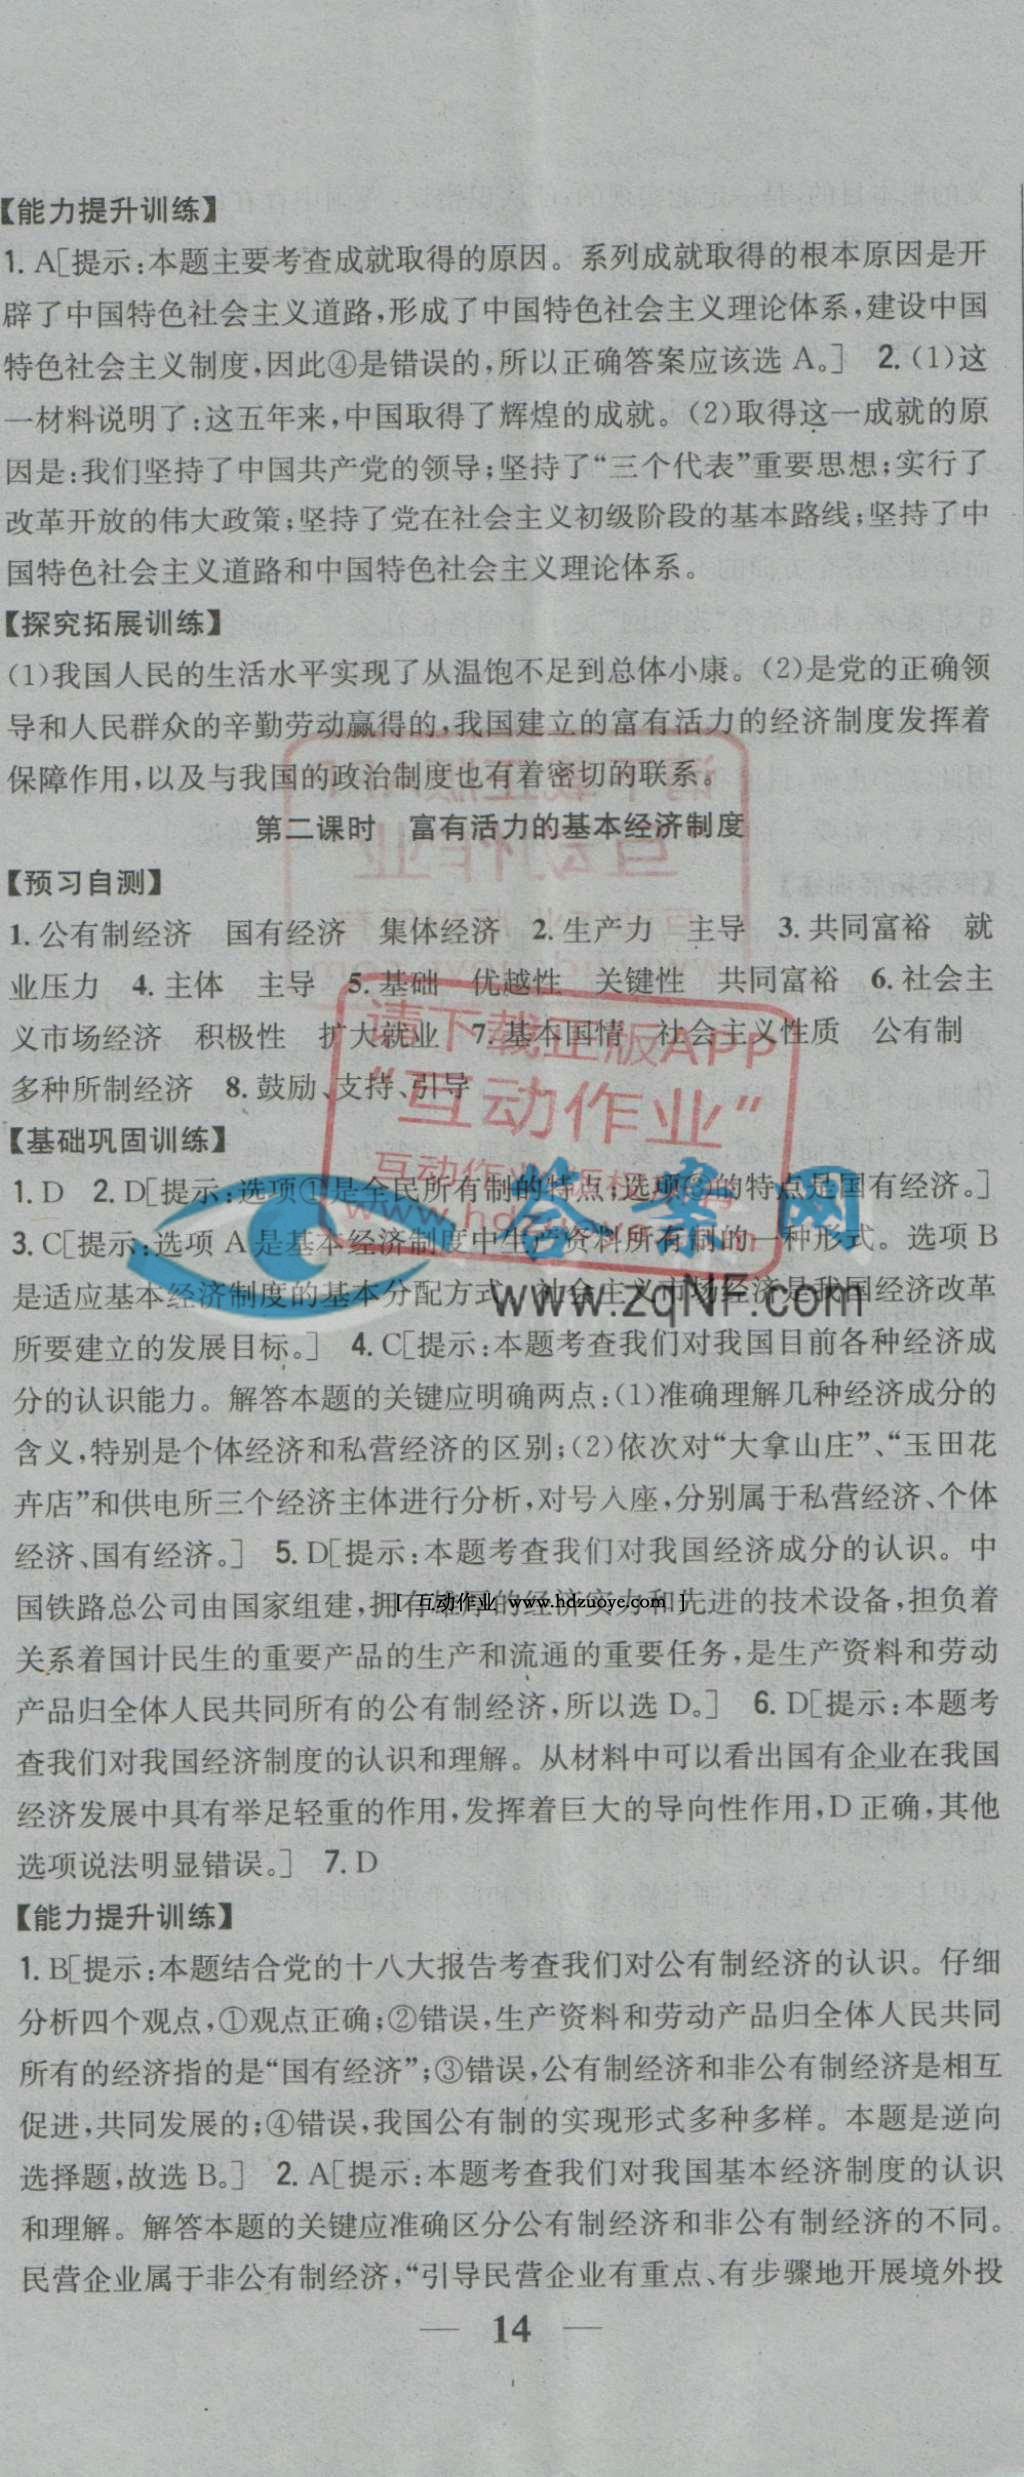 【能力提升训练】
1. A[提示:本题主要考查成就取得的原因。系列成就取得的根本原因是开
辟了中国特色社会主义道路,形成了中国特色社会主义理论体系,建设中国
特色社会主义制度,因此④是错误的,所以正确答案应该选 A。] 2. (1)这
一材料说明了:这五年来,中国取得了辉煌的成就。(2)取得这一成就的原
因是:我们坚持了中国共产党的领导;坚持了“三个代表”重要思想;实行了
改革开放的伟大政策;坚持了党在社会主义初级阶段的基本路线;坚持了中
国特色社会主义道路和中国特色社会主义理论体系。
【探究拓展训练】
(1)我国人民的生活水平实现了从温饱不足到总体小康。(2)是党的正确领
导和人民群众的辛勤劳动赢得的,我国建立的富有活力的经济制度发挥着
保障作用,以及与我国的政治制度也有着密切的联系。
第二课时 富有活力的基本经济制度
【预习自测】
1. 公有制经济 国有经济 集体经济 2. 生产力 主导 3. 共同富裕 就
业压力 4. 主体 主导 5. 基础 优越性 关键性 共同富裕 6. 社会主
义市场经济 积极性 扩大就业 7. 基本国情 社会主义性质 公有制
多种所制经济 8. 鼓励、支持、引导
请下载正版APP
“互动作业”
【基础巩固训练】
1. D 2. D[提示:选项①是全民所有制的特点;选项③的特点是国有经济。]
互动作业版权
www.hdzuoye.com
答案网
www.zqNF.com
3. C[提示:选项 A 是基本经济制度中生产资料所有制的一种形式。选项 B
是适应基本经济制度的基本分配方式。社会主义市场经济是我国经济改革
所要建立的发展目标。] 4. C[提示:本题考查我们对我国目前各种经济成
分的认识能力。解答本题的关键应明确两点:(1)准确理解几种经济成分的
含义,特别是个体经济和私营经济的区别;(2)依次对“大拿山庄”、“玉田花
卉店”和供电所三个经济主体进行分析,对号入座,分别属于私营经济、个体
经济、国有经济。] 5. D[提示:本题考查我们对我国经济成分的认识。中
国铁路总公司由国家组建,拥有雄厚的经济实力和先进的技术设备,担负着
[ 互动作业 www.hdzuoye.com ]
关系着国计民生的重要产品的生产和流通的重要任务,是生产资料和劳动
产品归全体人民共同所有的公有制经济,所以选 D。] 6. D[提示:本题考
查我们对我国经济制度的认识和理解。从材料中可以看出国有企业在我国
经济发展中具有举足轻重的作用,发挥着巨大的导向性作用,D 正确,其他
选项说法明显错误。] 7. D
【能力提升训练】
1. B[提示:本题结合党的十八大报告考查我们对公有制经济的认识。仔细
分析四个观点,①观点正确;②错误,生产资料和劳动产品归全体人民共同
所有的经济指的是“国有经济”;③错误,公有制经济和非公有制经济是相互
促进,共同发展的;④错误,我国公有制的实现形式多种多样。本题是逆向
选择题,故选 B。] 2. A[提示:本题考查我们对我国基本经济制度的认识
和理解。解答本题的关键应准确区分公有制经济和非公有制经济的不同。
民营企业属于非公有制经济,“引导民营企业有重点、有步骤地开展境外投
— 14 —